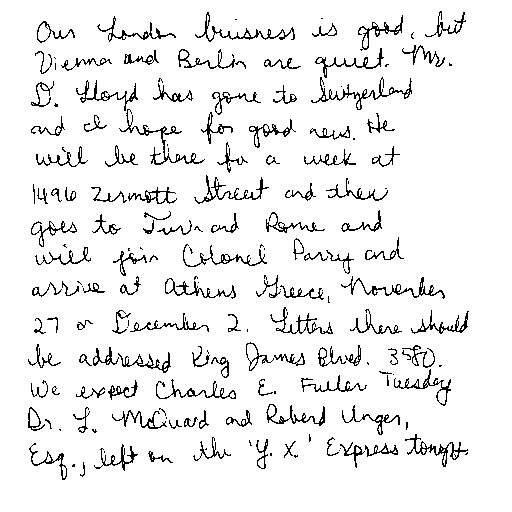 Our London buisness is good, but
Vienna and Berlin are quiet. Mr.
D. Lloyd has gone to Switzerland
and I hope for good news. He
will be there for a week at
1496 Zermott Street and then
goes to Turin and Rome and
will join Colonel Parry and
arrive at Athens Greece, November
27 or December 2. Letters there should
be addressed King James Blvd. 3580.
We expect Charles E. Fuller Tuesday
Dr. L. McQuard and Roberd Unger,
Esq., left on the 'Y. X.' Express tonight.